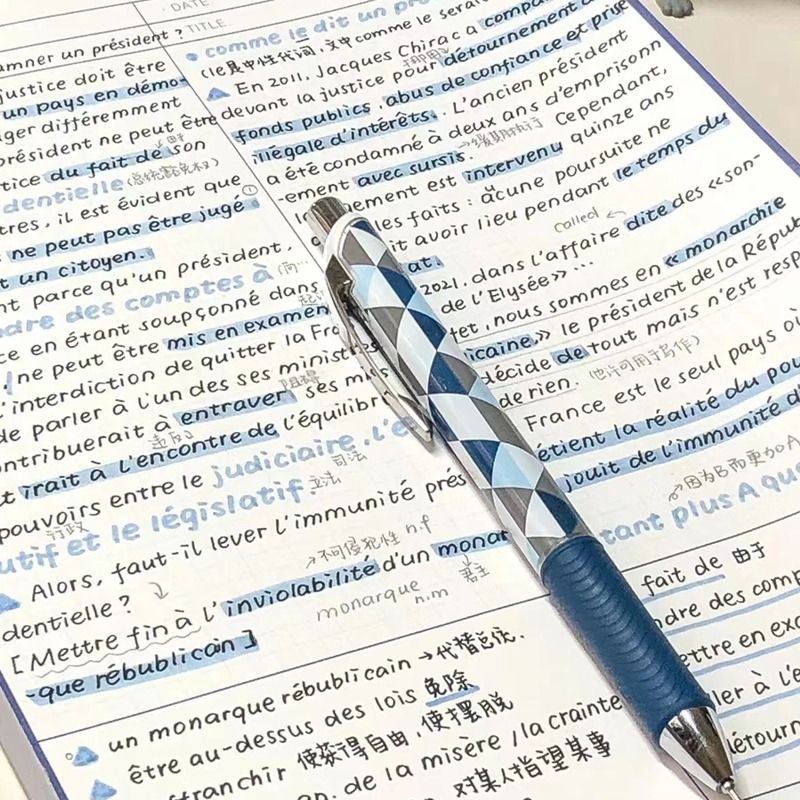 DATE.
TITLE.
amner un président ?
justice doit être
un pays en démo-
ger différemment
président ne peut être
tice du fait de son
dentielle (总统豁免权)
tres, il est évident que
ne peut pas être jugé
t un citoyen.
nt parce qu'un président,
dre des comptes à
ce en étant soupçonné dans
ne peut être mis en examen
l'interdiction de quitter la Fra
de parler à l'un des ses ministres
阻碍
ntribuerait à entraver ses mis
违反
t irait à l'encontre de l'équilibr
pouvoirs entre le judiciaire, l'e
行政 司法
utif et le législatif. 立法
Alors, faut-il lever l'immunité prés
dentielle ?
不可侵犯性 n.f
[Mettre fin à l'inviolabilité d'un monar
monarque n.m 君主
-que rébublicain]
un monarque rébublicain → 代替总统.
être au-dessus des lois 免除
franchir 使获得自由, 使摆脱
an. de la misère / la crainte
对某人指望某事
comme le dit un pro
(le是中性代词, 文中 comme le serai
En 2011, Jacques Chirac a compa
devant la justice pour détournement d
fonds publics, abus de confiance et prise
illégale d'intérêts. L'ancien président
a été condamné à deux ans d'emprisonn
-ement avec sursis. →缓期执行 Cependant,
nement est intervenu quinze ans
les faits : aucune poursuite ne
it avoir lieu pendant le temps du
at. called
2021, dans l'affaire dite des «son-
de l'Elysée» ...
tet, nous sommes en « monarchie
icaine,» le président de la Répub
décide de tout mais n'est resp
de rien. (也许可用于写作)
France est le seul pays où
étient la réalité du pou
jouit de l'immunité d
因为B而更加A
tant plus A que
fait de 由于
ndre des comp
ettre en exa
ler à l'e
détourn